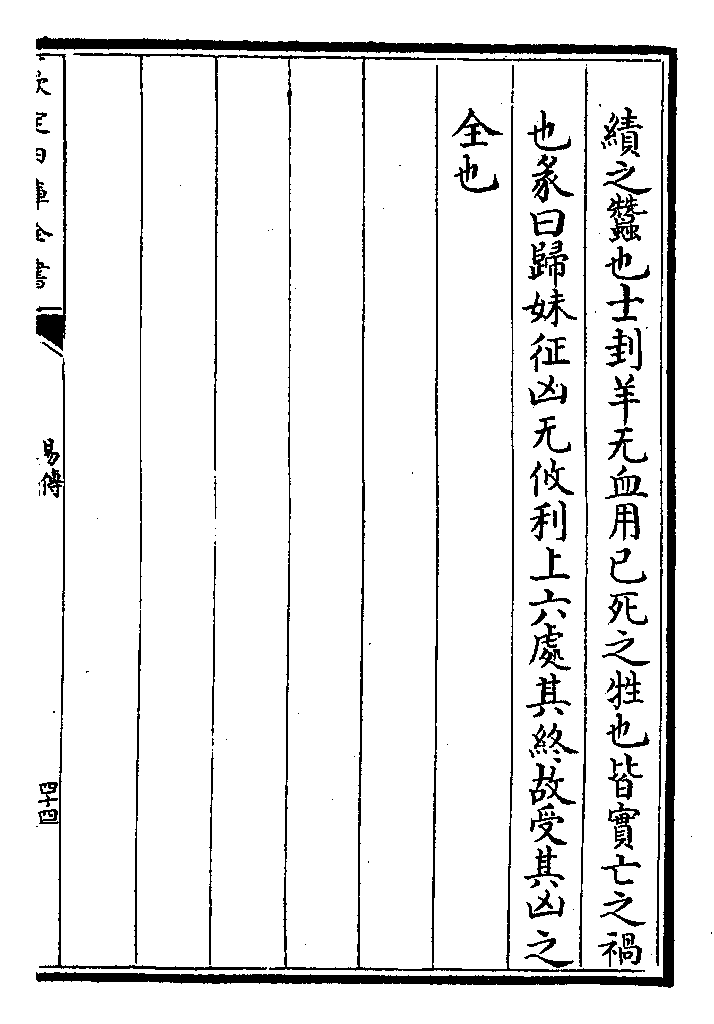 績之蠶也士刲羊无血用已死之牲也皆實亡之禍
也彖曰歸妹征凶无攸利上六處其終故受其凶之
全也
欽定四庫全書
易傳
四十四